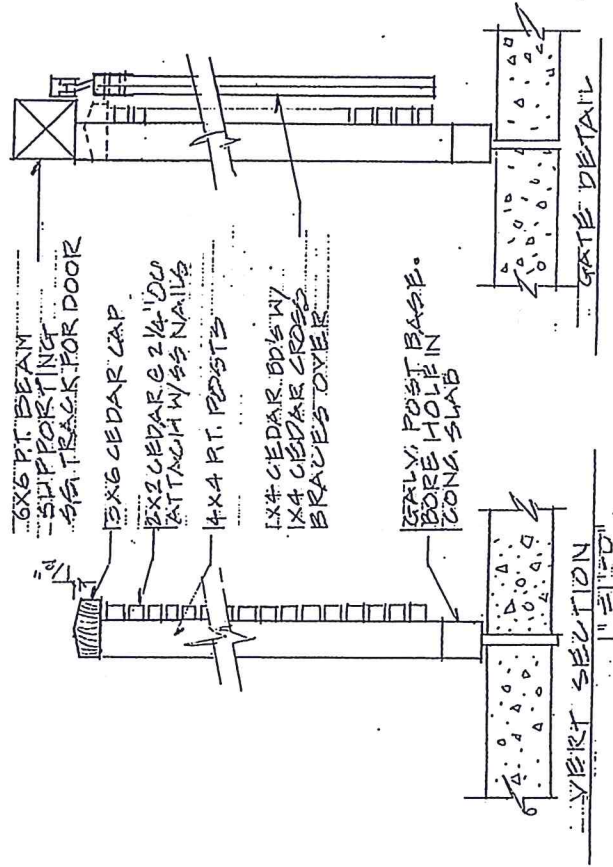 6X6 P.T. BEAM
SUPPORTING
S.S. TRACK FOR DOOR
3X6 CEDAR CAP
2X2 CEDAR @ 2 1/4" OC
ATTACH W/ SS NAILS
4X4 P.T. POSTS
1X4 CEDAR BD'S W/
1X4 CEDAR CROSS
BRACES OVER
GALV. POST BASE.
BORE HOLE IN
CONC. SLAB
VERT SECTION
1"=1'-0"
GATE DETAIL